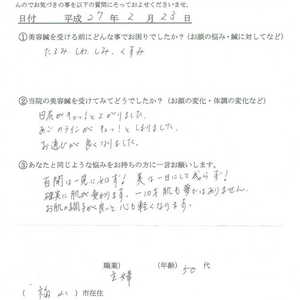 んのでお気づきの事を以下の質問にそっておよせくださいませ。
日付 平成 27 年 2 月 23 日
①美容鍼を受ける前にどんな事でお困りでしたか?(お顔の悩み・鍼に対してなど)
たるみ しわ、しみ、くすみ
②当院の美容鍼を受けてみてどうでしたか?(お顔の変化・体調の変化など)
目尻がキュっ!と上がりました。
あごのラインがキュっ!としまりました。
お通じが良くなりました。
③あなたと同じような悩みをお持ちの方に一言お願いします。
百聞は一見に如かず! 美は一日にして成らず!
確実に肌が変わります。一10才肌も夢ではありません。
お肌の調子が良いと心も軽くなります。
職業) 主婦 (年齢) 50 代
( 福山 ) 市在住